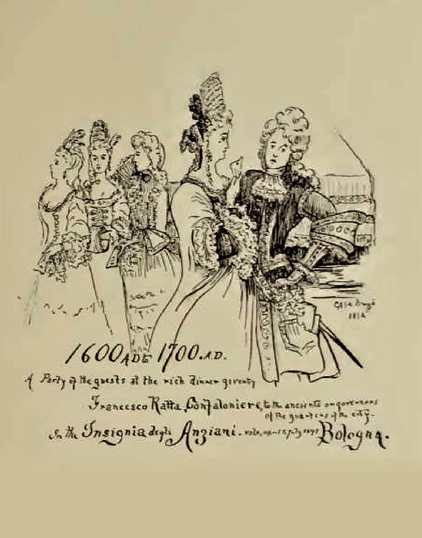 1600 A.D to 1700 A.D.
A Party of the guests at the rich dinner given by
Francesco Ratta Confaloniere, to the ancients or governors
of the quarters of the city.
In the Insignia degli Anziani. Bologna.